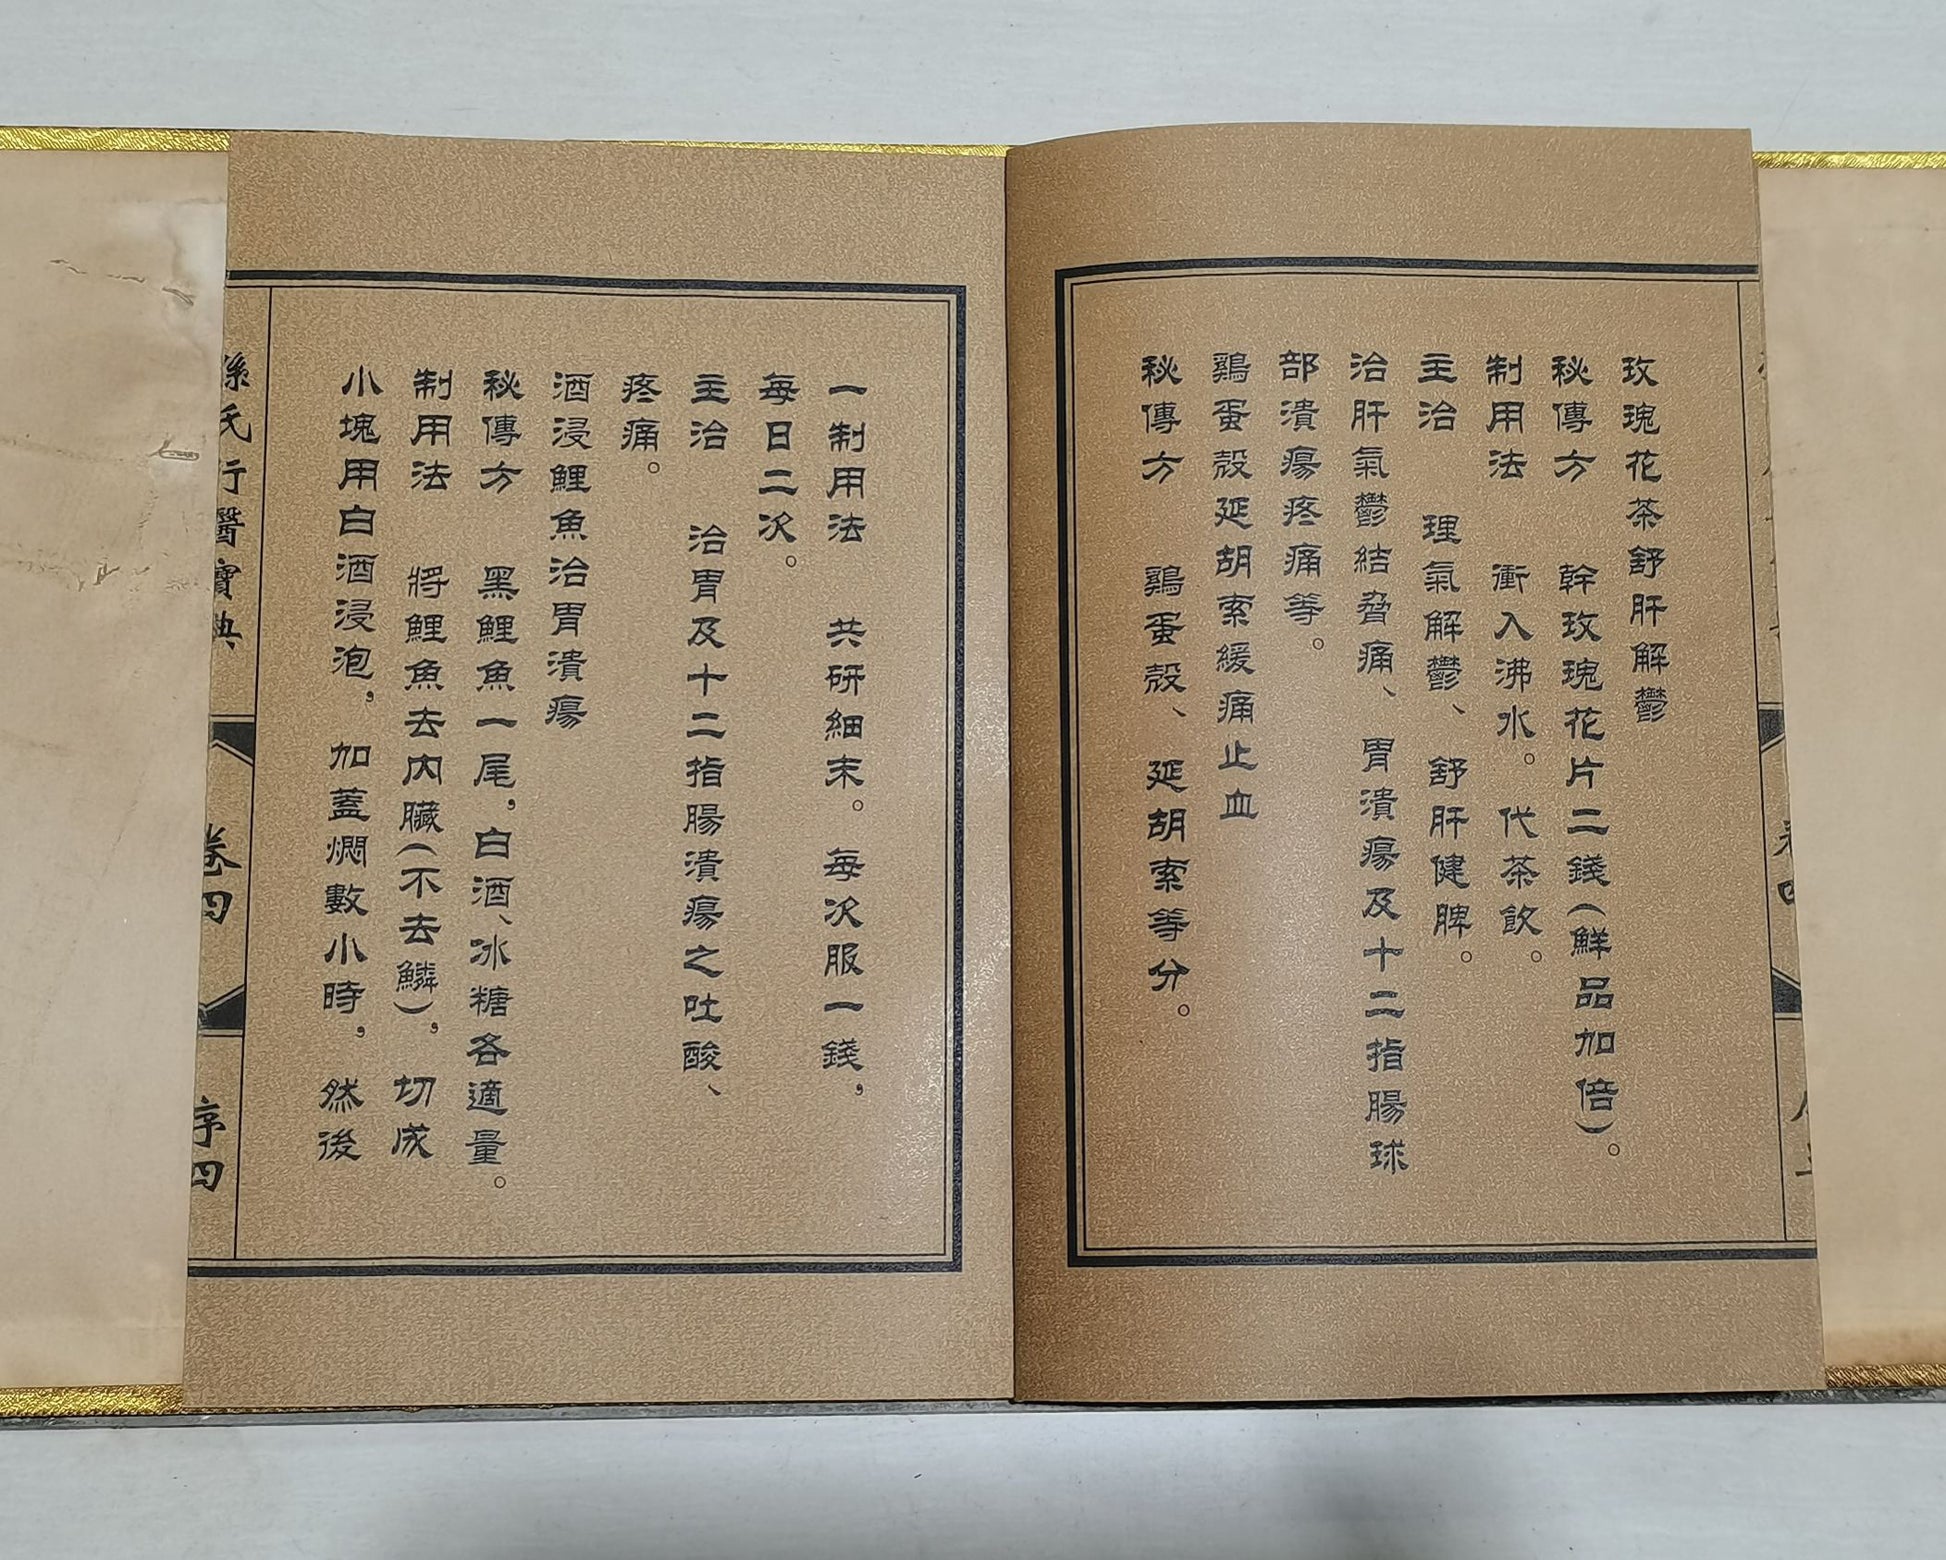 玫瑰花茶舒肝解鬱
秘傳方 幹玫瑰花片二錢(鮮品加倍)。
制用法 衝入沸水。代茶飲。
主治 理氣解鬱、舒肝健脾。
治肝氣鬱結脅痛、胃潰瘍及十二指腸球
部潰瘍疼痛等。
鷄蛋殼延胡索緩痛止血
秘傳方 鷄蛋殼、延胡索等分。
一制用法 共研細末。每次服一錢,
每日二次。
主治 治胃及十二指腸潰瘍之吐酸、
疼痛。
酒浸鯉魚治胃潰瘍
秘傳方 黑鯉魚一尾,白酒、冰糖各適量。
制用法 將鯉魚去内臟(不去鱗),切成
小塊用白酒浸泡,加蓋燜數小時,然後
孫氏行醫寶典
卷四
序四